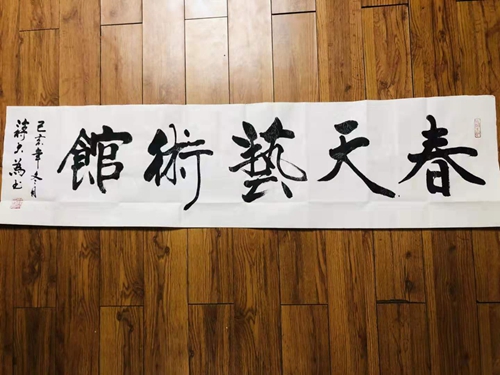 春天藝術館
己亥年冬月